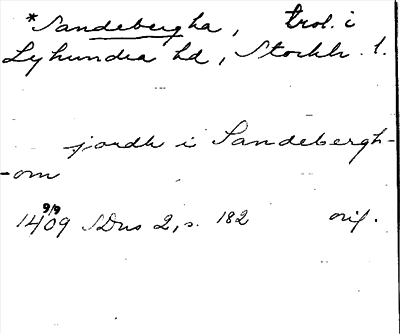 *Sandebergha, trol. i
Lyhundra hd, Stockh. l.
jordh i Sandebergh-
-om
9/9
1409 SDns 2, s. 182 orig.